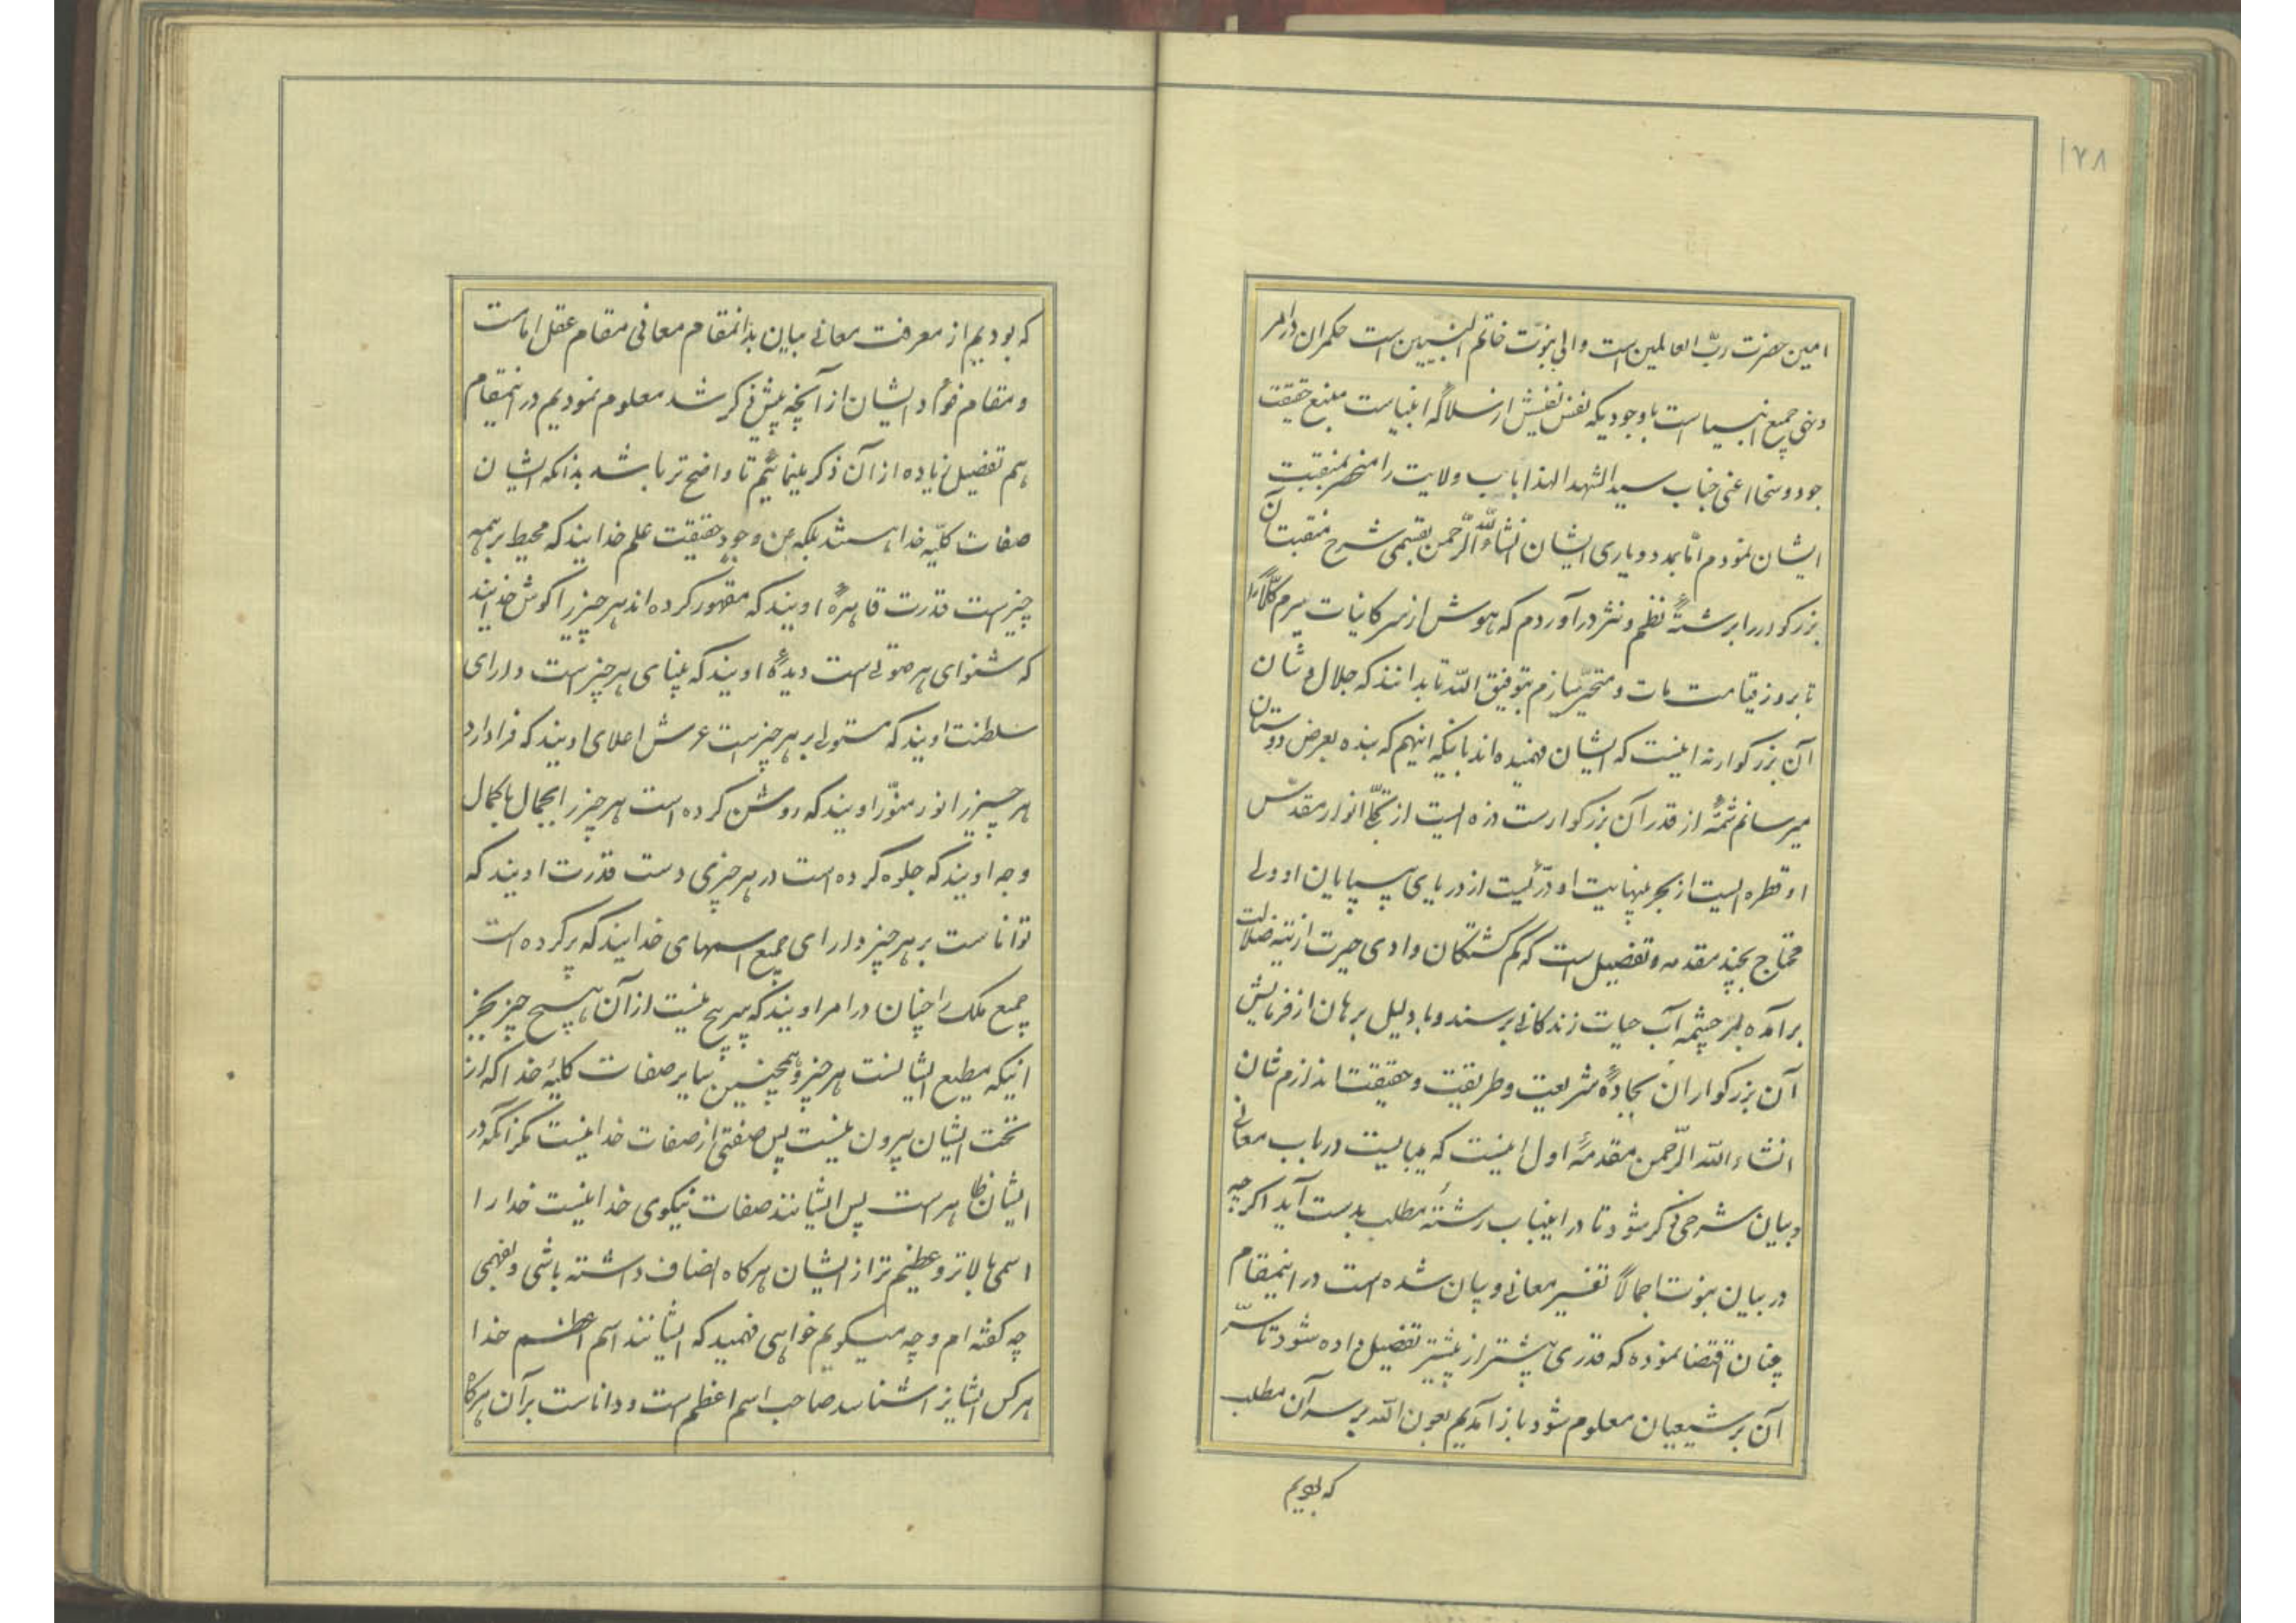 ۱۷۸
امین حضرت ربّ العالمین است والی نبوّت خاتم النبیّین است حکمران در امر
و نهی جمیع انبیا است باوجودیکه نفس نفیسش از سلالهٔ انبیاست منبع حقیقت
جود و سخا اعنی جناب سید الشهدا لهذا باب ولایت را منحصر بمنقبت
ایشان نمودم امّا بمدد و یاری ایشان انشاء اللّه الرّحمن بقسمی شرح منقبت آن
بزرکوار را برشتهٔ نظم و نثر درآوردم که هوش از سر کاینات ببرم کلّا را
تا بروز قیامت مات و متحیّر سازم بتوفیق اللّه تا بدانند که جلال و شان
آن بزرکوار نه اینست که ایشان فهمیده اند بلکه اینهم که بنده بعرض دوستان
میرسانم شمّهٔ از قدر آن بزرکوارست ذره ایست از تجلّی انوار مقدّس
او قطره ایست از بحر بینهایت او درّیست از دریای بی پایان او ولی
محتاج بچند مقدمه و تفصیل است که کم کشتکان وادی حیرت از تیه ضلالت
برآمده بسر چشمه آب حیات زندکانی برسند و با دلیل برهان از فرمایش
آن بزرکواران بجادهٔ شریعت و طریقت و حقیقت اندازم شان
انشاء اللّه الرّحمن مقدمهٔ اول اینست که میبایست در باب معانی
و بیان شرحی ذکر شود تا در اینباب رشتهٔ مطلب بدست آید اکرچه
در بیان نبوت اجمالاً تفسیر معانی و بیان شده است در اینمقام
چنان اقتضا نموده که قدری بیشتر از پیشتر تفصیل داده شود تا سرّ
آن بر شیعیان معلوم شود باز آمدیم بعون اللّه بر سر آن مطلب
که بودیم
که بودیم از معرفت معانی بیان بدانمقام معانی مقام عقل اماست
و مقام فواد ایشان از آنچه پیش ذکر شد معلوم نمودیم در اینمقام
هم تفصیل زیاده از آن ذکر مینمائیم تا واضح تر باشد بدانکه ایشان
صفات کلیّه خدا هستند بلکه من وجود حقیقت علم خدایند که محیط بر همه
چیزست قدرت قاهرهٔ اویند که مقهور کرده اند هر چیز را کوش خدایند
که شنوای هر صوتی است دیدهٔ اویند که بینای هر چیز است دارای
سلطنت اویند که مستولی بر هر چیز است عرش اعلای اویند که فرا دارد
هر چیز را نور منوّر اویند که روشن کرده است هر چیز را بجمال باکمال
وجه اویند که جلوه کرده است در هر چیزی دست قدرت اویند که
تواناست بر هر چیز دارای جمیع اسمهای خدایند که پر کرده است
جمیع ملک را چنان در امر اویند که سرپیچ نیست از آن هیچ چیز بجز
اینکه مطیع ایشانست هر چیز و همچنین سایر صفات کلیهٔ خدا که از
تحت ایشان بیرون نیست پس صفتی از صفات خدا نیست مکر آنکه در
ایشان ظاهر است پس ایشانند صفات نیکوی خدا نیست خدا را
اسمی بالاتر و عظیم تر از ایشان هرکاه انصاف داشته باشی و بفهمی
چه کفته ام و چه میکویم خواهی فهمید که ایشانند اسم اعظم خدا
هر کس ایشانرا شناسد صاحب اسم اعظم است و داناست بر آن هرکاه